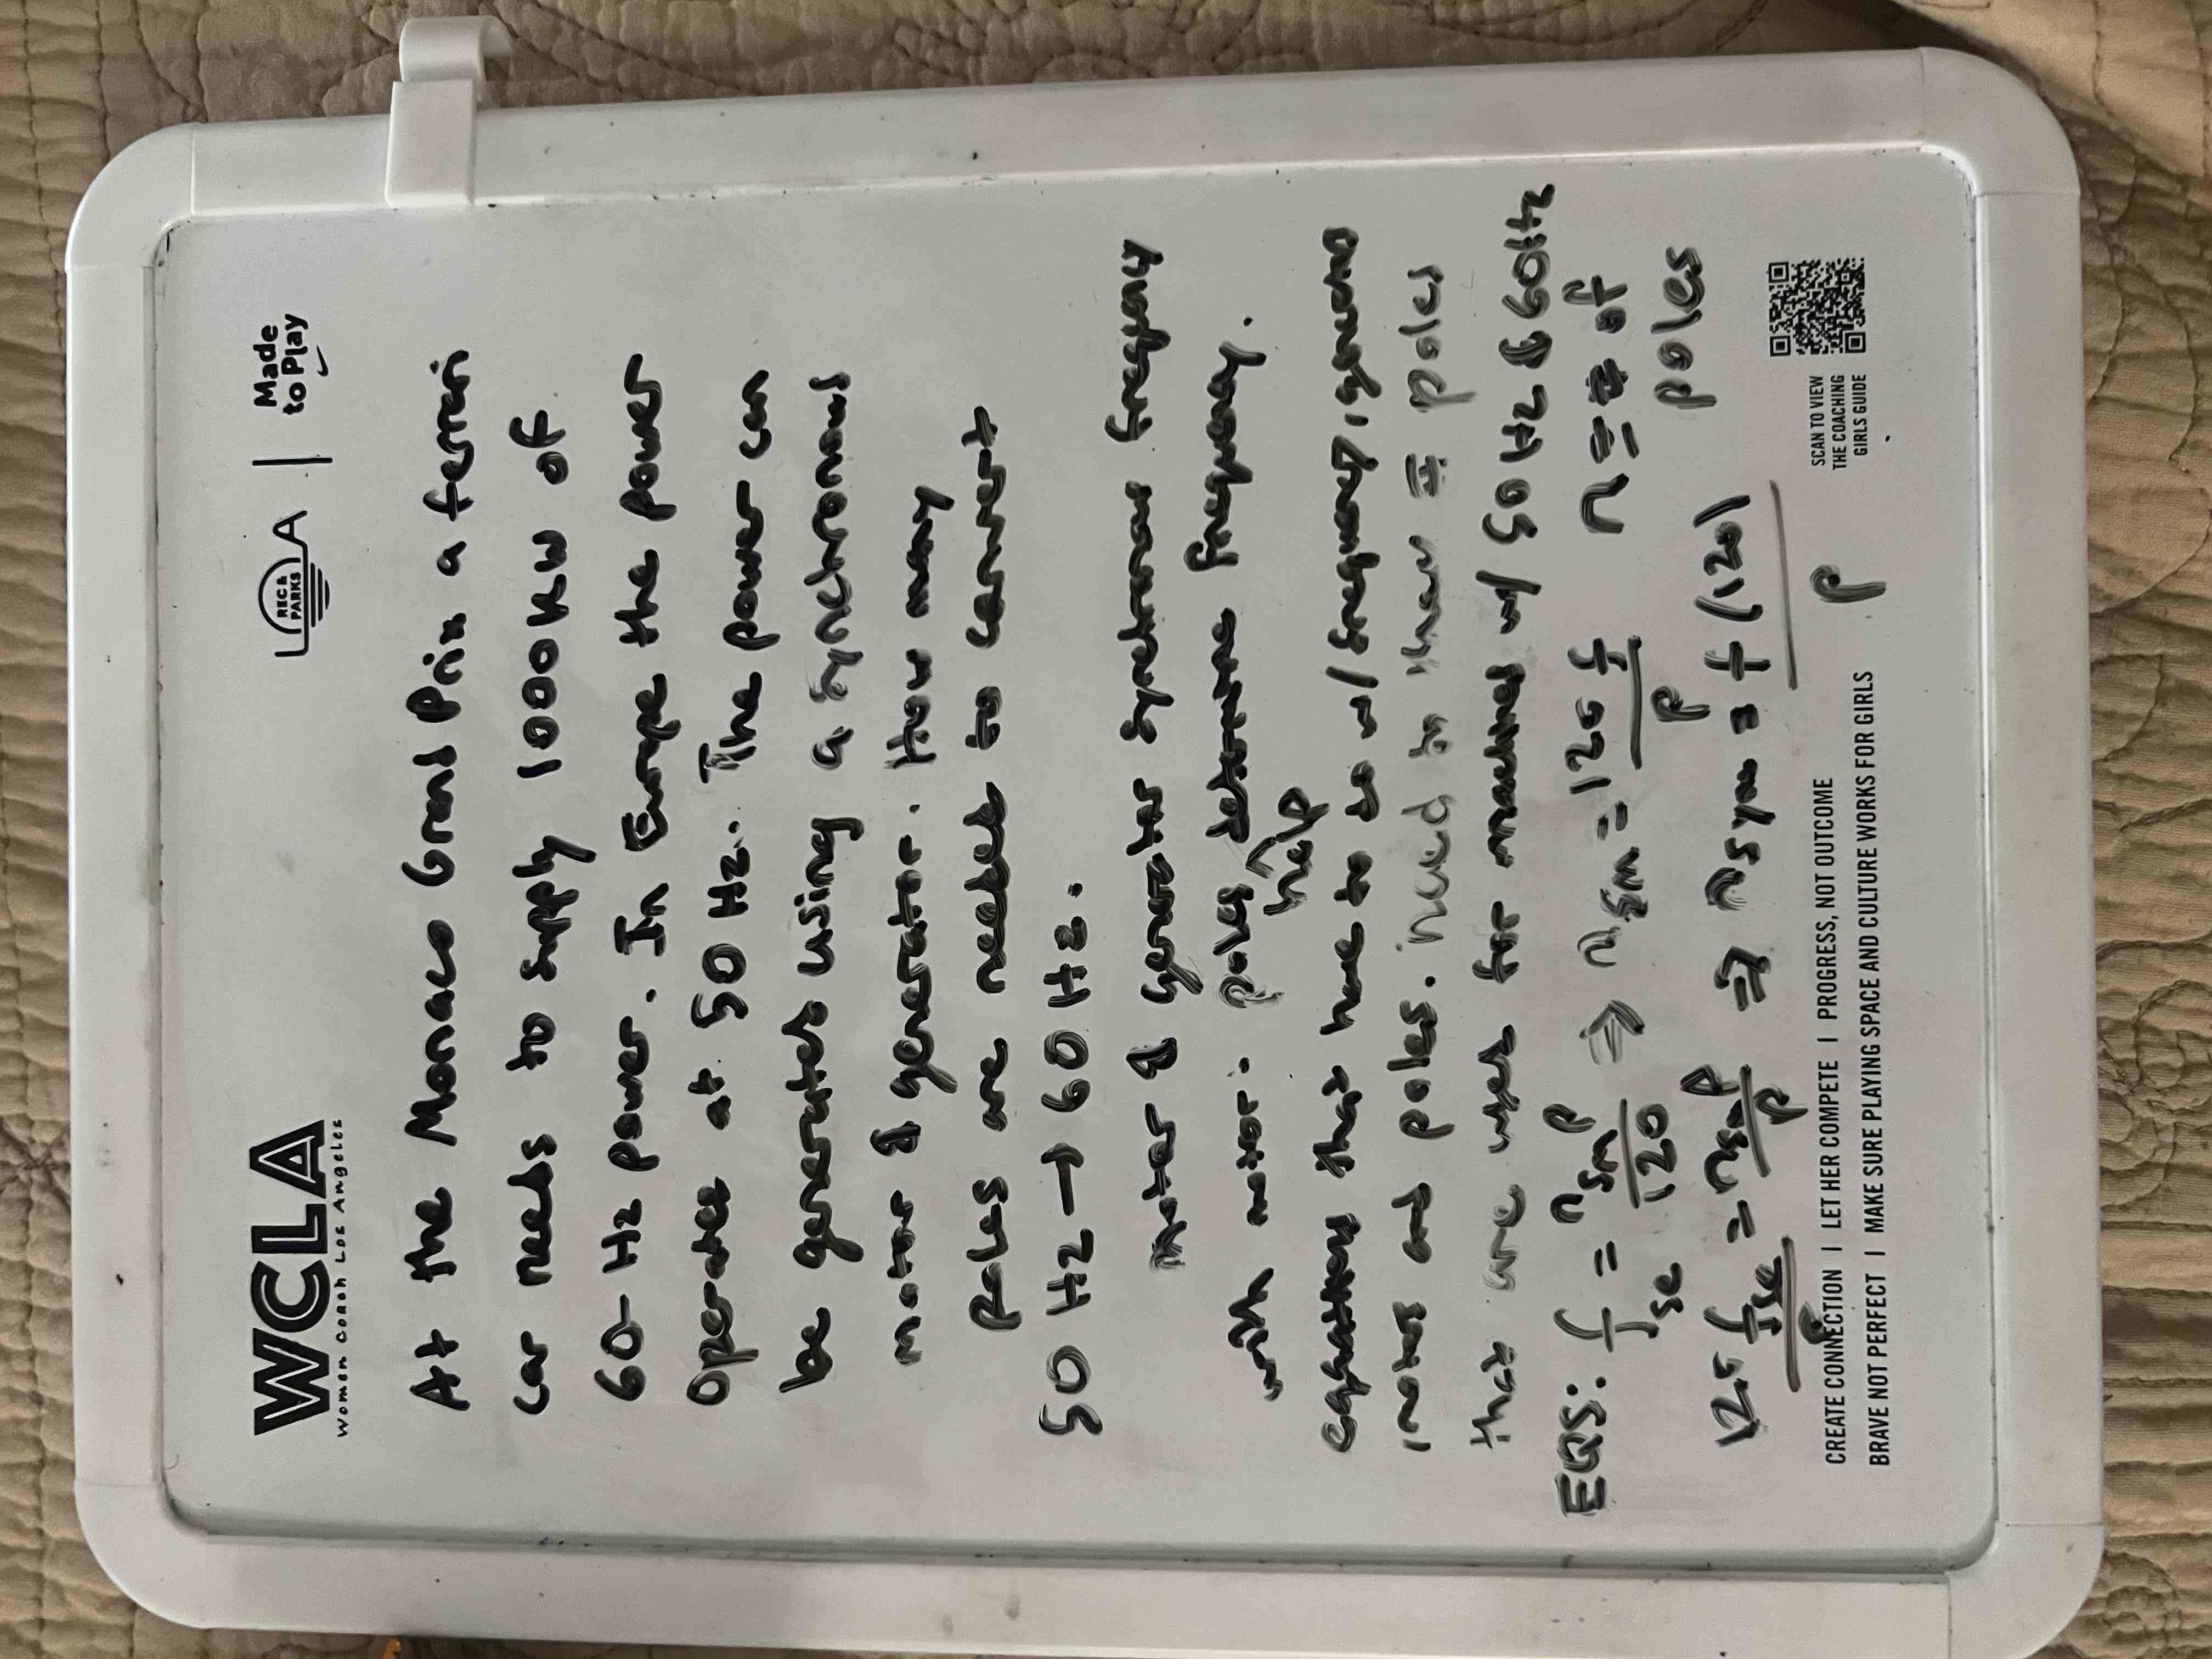 WCLA
Women Coach Los Angeles
LA REC & PARKS
Made to Play
At the Monaco Grand Prix a ferrari
car needs to supply 1000 KW of
60- Hz power. In Europe the power
Operates at 50 Hz. The power can
be generated using a synchronous
motor & generator. How many
poles are needed to convert
50 Hz → 60 Hz.
motor & generator synchronous frequency
with motor. poles help determine frequency.
equations that have to do w/ frequency, generators
, motors and poles. need to know # poles
that are used for machines w/ 50 Hz & 60Hz
EQS: f_se = n_sm P / 120 ⇒ n_sm = 120 f / P n = # of
poles
120 f_se / P = n_sm P / P ⇒ n_sym = f (120) / P
CREATE CONNECTION | LET HER COMPETE | PROGRESS, NOT OUTCOME
BRAVE NOT PERFECT | MAKE SURE PLAYING SPACE AND CULTURE WORKS FOR GIRLS
SCAN TO VIEW
THE COACHING
GIRLS GUIDE